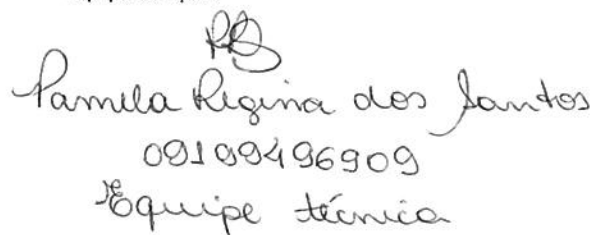 Pamela Regina dos Santos
09109496909
Equipe técnica